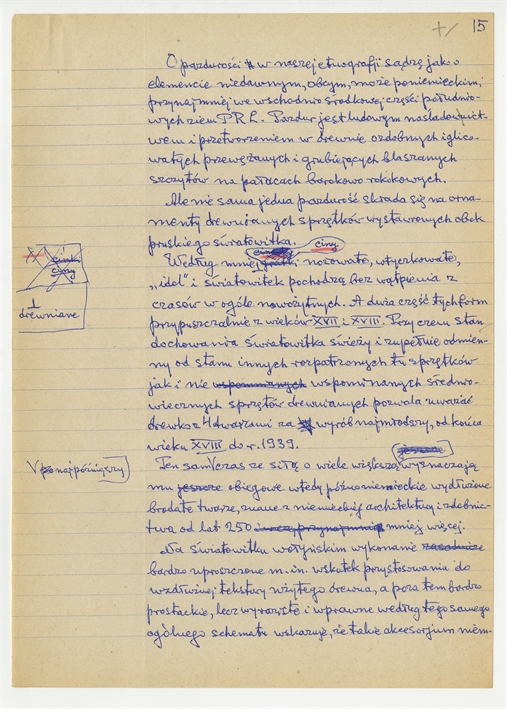 +/ 15
O pazdurości w naszej etnografji sądzę jako o
elemencie niedawnym, obcym, może poniemieckim,
przynajmniej we wschodnio środkowej części południo-
wych ziem PRL. Pazdur jest ludowym naśladownict-
wem i przetworzeniem w drewnie ozdobnych iglico-
watych przewężanych i grubiejących blaszanych
szczytów na pałacach barokowo rokokowych.
Ale nie sama jedna pazdurość składa się na orna-
menty drewnianych sprzętków wystawionych obok
pruskiego światowitka.
ciny
Według mnie nosowate, wtyczkowate,
„idol" i światowitek pochodzą bez wątpienia z
czasów w ogóle nowożytnych. A duża część tych form
przypuszczalnie z wieków XVII i XVIII. Przy czem stan
dochowania światowitka świeży i zupełnie odmien-
ny od stanu innych rozpatrzonych tu sprzętków
jak i nie wspomnianych wspominanych średnio-
wiecznych sprzętów drewnianych pozwala uważać
drewko z 4 twarzami za wyrób najmłodszy, od końca
wieku XVIII do r. 1939.
drewniane
V najpóźniejszy
Ten sam czas ze siłą o wiele większą wyznaczają
mu jeszcze obiegowe wtedy późnoniemieckie wydłużone
brodate twarze, znane z niemieckiej architektury i zdobnic-
twa od lat 250 mniej więcej.
Na światowitku wołyńskim wykonanie zasadnicze
bardzo uproszczone m.in. wskutek przystosowania do
wzdłużnej tekstury użytego drewna, a poza tem bardzo
prostackie, lecz wyraziste i wprawne według tego samego
ogólnego schematu wskazuje, że takie akcesorjum niem-